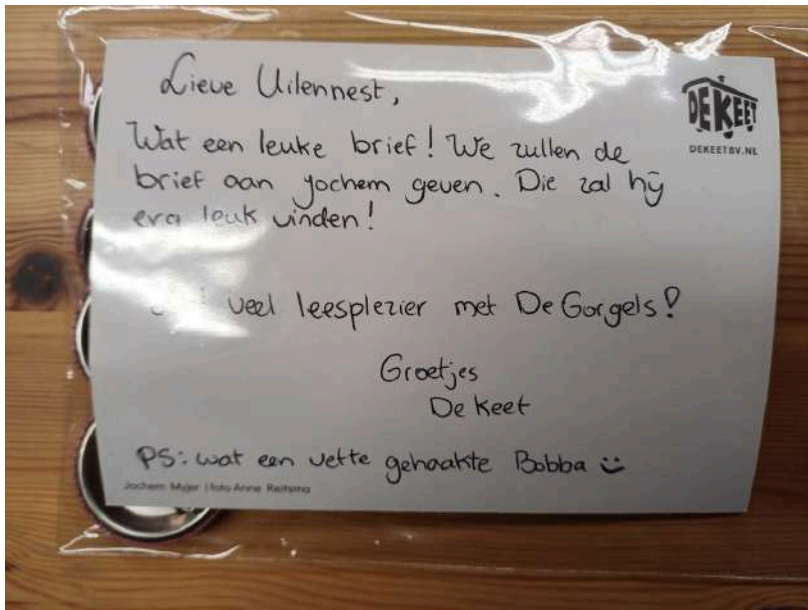 Lieve Uilennest,
DE KEET
DEKEETBV.NL
Wat een leuke brief! We zullen de
brief aan Jochem geven. Die zal hij
erg leuk vinden!
veel leesplezier met De Gorgels!
Groetjes
De Keet
PS: wat een vette gehaakte Bobba
Jochem Myjer | foto Anne Reitsma